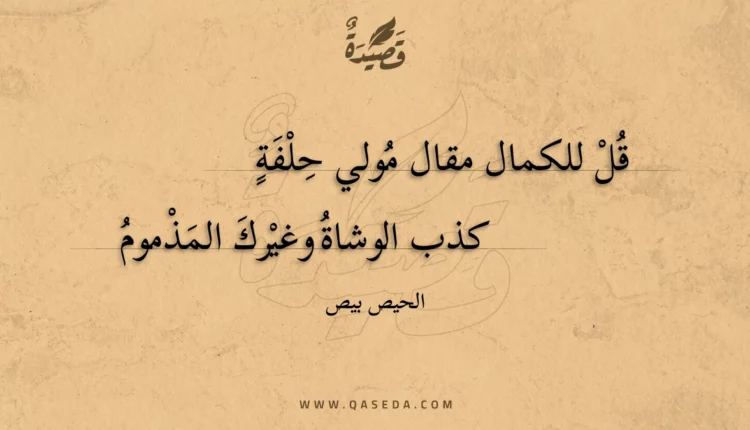 قَصِيْدَةٌ
قُلْ للكمال مقال مُولي حِلْفَةٍ
كذب الوشاةُ وغيْركَ المَذْمومُ
الحيص بيص
WWW.QASEDA.COM